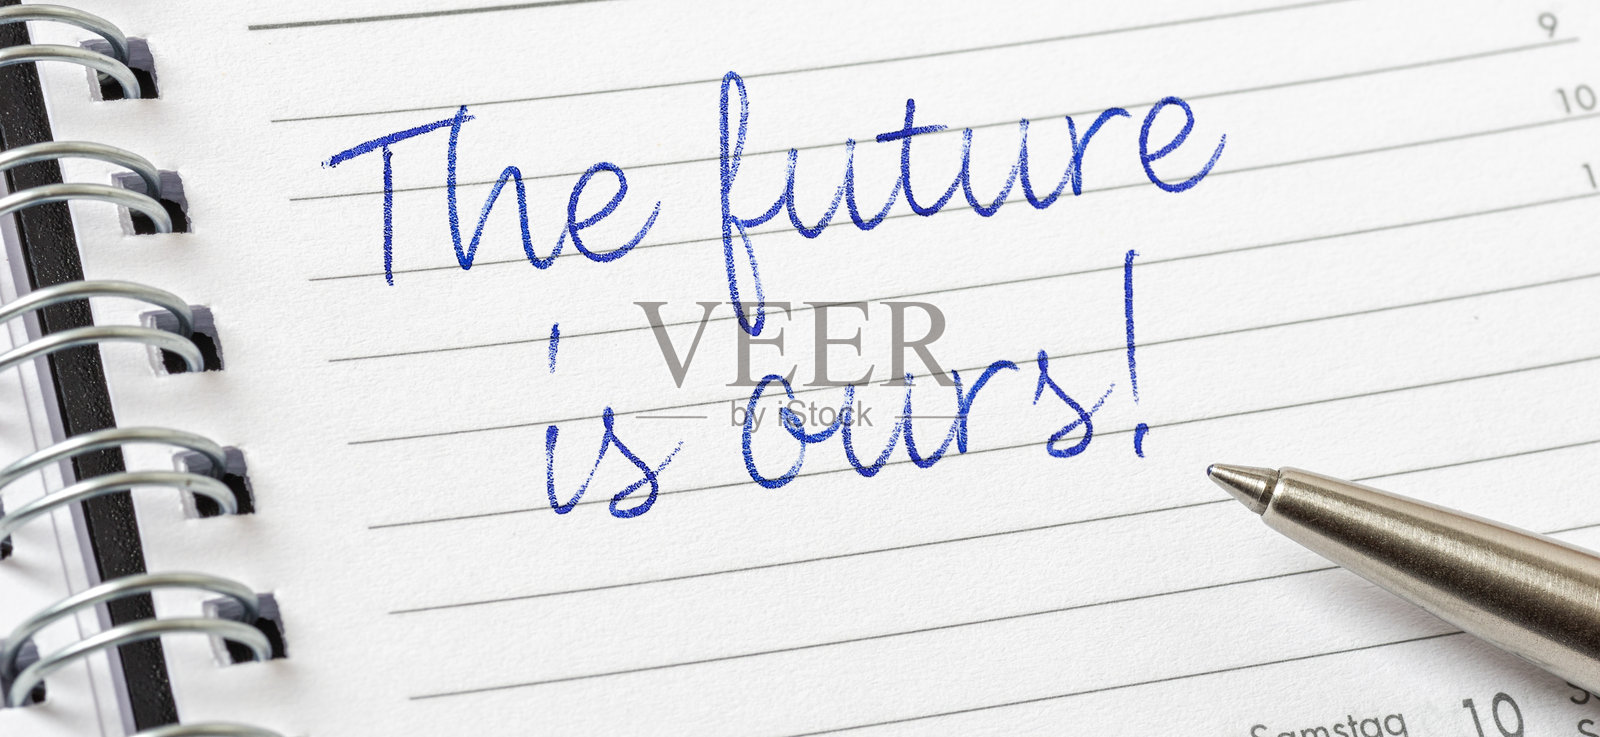 9
10
The future
1
VEER
is ours!
by iStock
Samstag 10